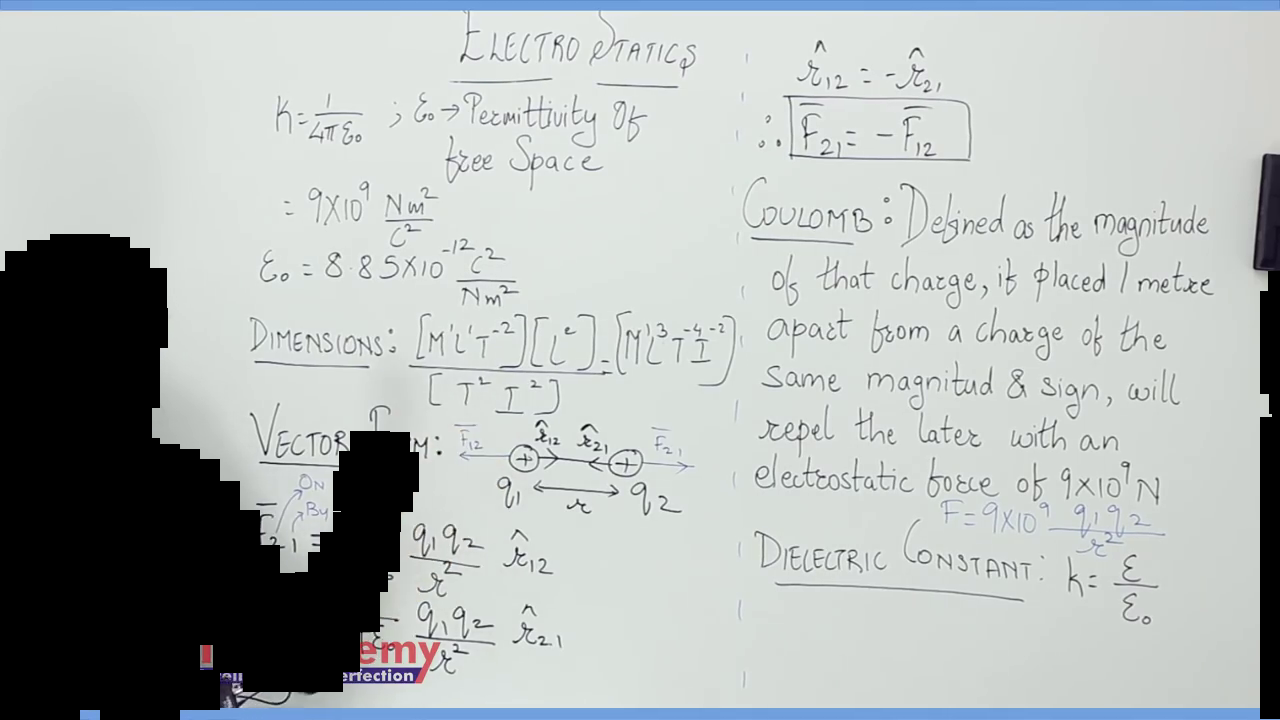 ELECTROSTATICS
K = 1/4πε₀ ; ε₀ → Permittivity Of
free Space
= 9×10⁹ Nm²/C²
ε₀ = 8.85×10⁻¹² C²/Nm²
DIMENSIONS: [M¹L¹T⁻²][L²]/[T²I²] = [M¹L³T⁻⁴I⁻²]
VECTOR
M:
F̅₁₂ r̂₁₂ r̂₂₁ F̅₂₁
+ +
q₁ r q₂
ON
By
F̅₂₁ =
q₁q₂/r² r̂₁₂
ε₀ q₁q₂/r² r̂₂₁
emy
erfection
r̂₁₂ = -r̂₂₁
∴ F̅₂₁ = -F̅₁₂
COULOMB: Defined as the magnitude
of that charge, if placed 1 metre
apart from a charge of the
same magnitud & sign, will
repel the later with an
electrostatic force of 9×10⁹N
F = 9×10⁹ q₁q₂/r²
DIELECTRIC CONSTANT: k = ε/ε₀